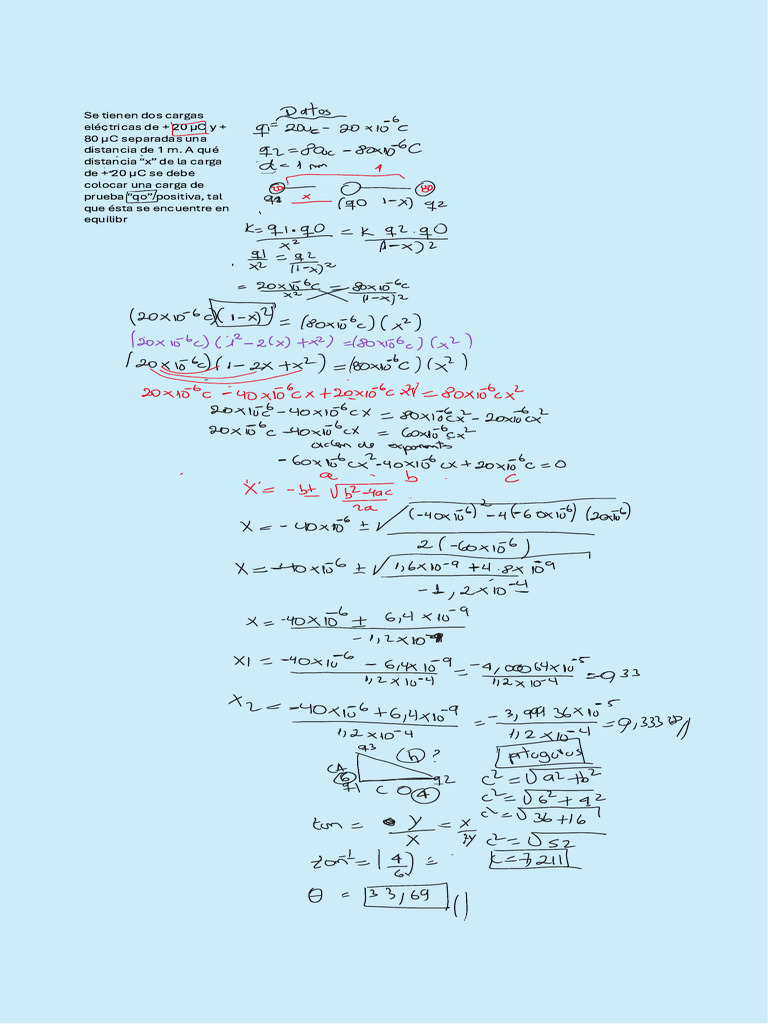 Se tienen dos cargas
eléctricas de + 20 μC y +
80 μC separadas una
distancia de 1 m. A qué
distancia "x" de la carga
de +"20 μC se debe
colocar una carga de
prueba "qo" positiva, tal
que ésta se encuentre en
equilibr
Datos
q1= 20uc - 20x10-6 C
q2 = 80uc - 80x10-6 C
d = 1 m
1
20 80
q1 x (q0 1-x) q2
K= q1.q0 / x2 = K q2.q0 / (1-x)2
q1 / x2 = q2 / (1-x)2
= 20x10-6c / x2 = 80x10-6c / (1-x)2
(20x10-6 c)(1-x)2 = (80x10-6c)(x2)
(20x10-6c)(12-2(x)+x2)=(80x10-6c)(x2)
(20x10-6c)(1-2x+x2)=(80x10-6c)(x2)
20x10-6c - 40x10-6cx + 20x10-6c x2 = 80x10-6cx2
20x10-6c - 40x10-6cx = 80x10-6cx2 - 20x10-6cx2
20x10-6c - 40x10-6cx = 60x10-6cx2
orden de exponente
-60x10-6cx2-40x10-6cx + 20x10-6c = 0
a b c
X = -b± √b2-4ac / 2a
X = -40x10-6 ± √(-40x10-6)2-4(-60x10-6)(20x10-6) / 2(-60x10-6)
X = -40x10-6 ± √1,6x10-9 + 4.8x10-9 / -1,2x10-4
X = -40x10-6 ± 6,4x10-9 / -1,2x10-4
X1 = -40x10-6 - 6,4x10-9 / 1,2x10-4 = -4,00064x10-5 / 1,2x10-4 = 0,33
X2 = -40x10-6 + 6,4x10-9 / 1,2x10-4 = -3,99936x10-5 / 1,2x10-4
q3 (h) ?
CA
6
q1 CO 4 q2
pitagoras
c2 = √a2+b2
c2 = √62+42
c2 = √36+16
c2 = √52
c=7,211
tan = y / x = x
tan-1 = (4/6) =
θ = 33,69 //